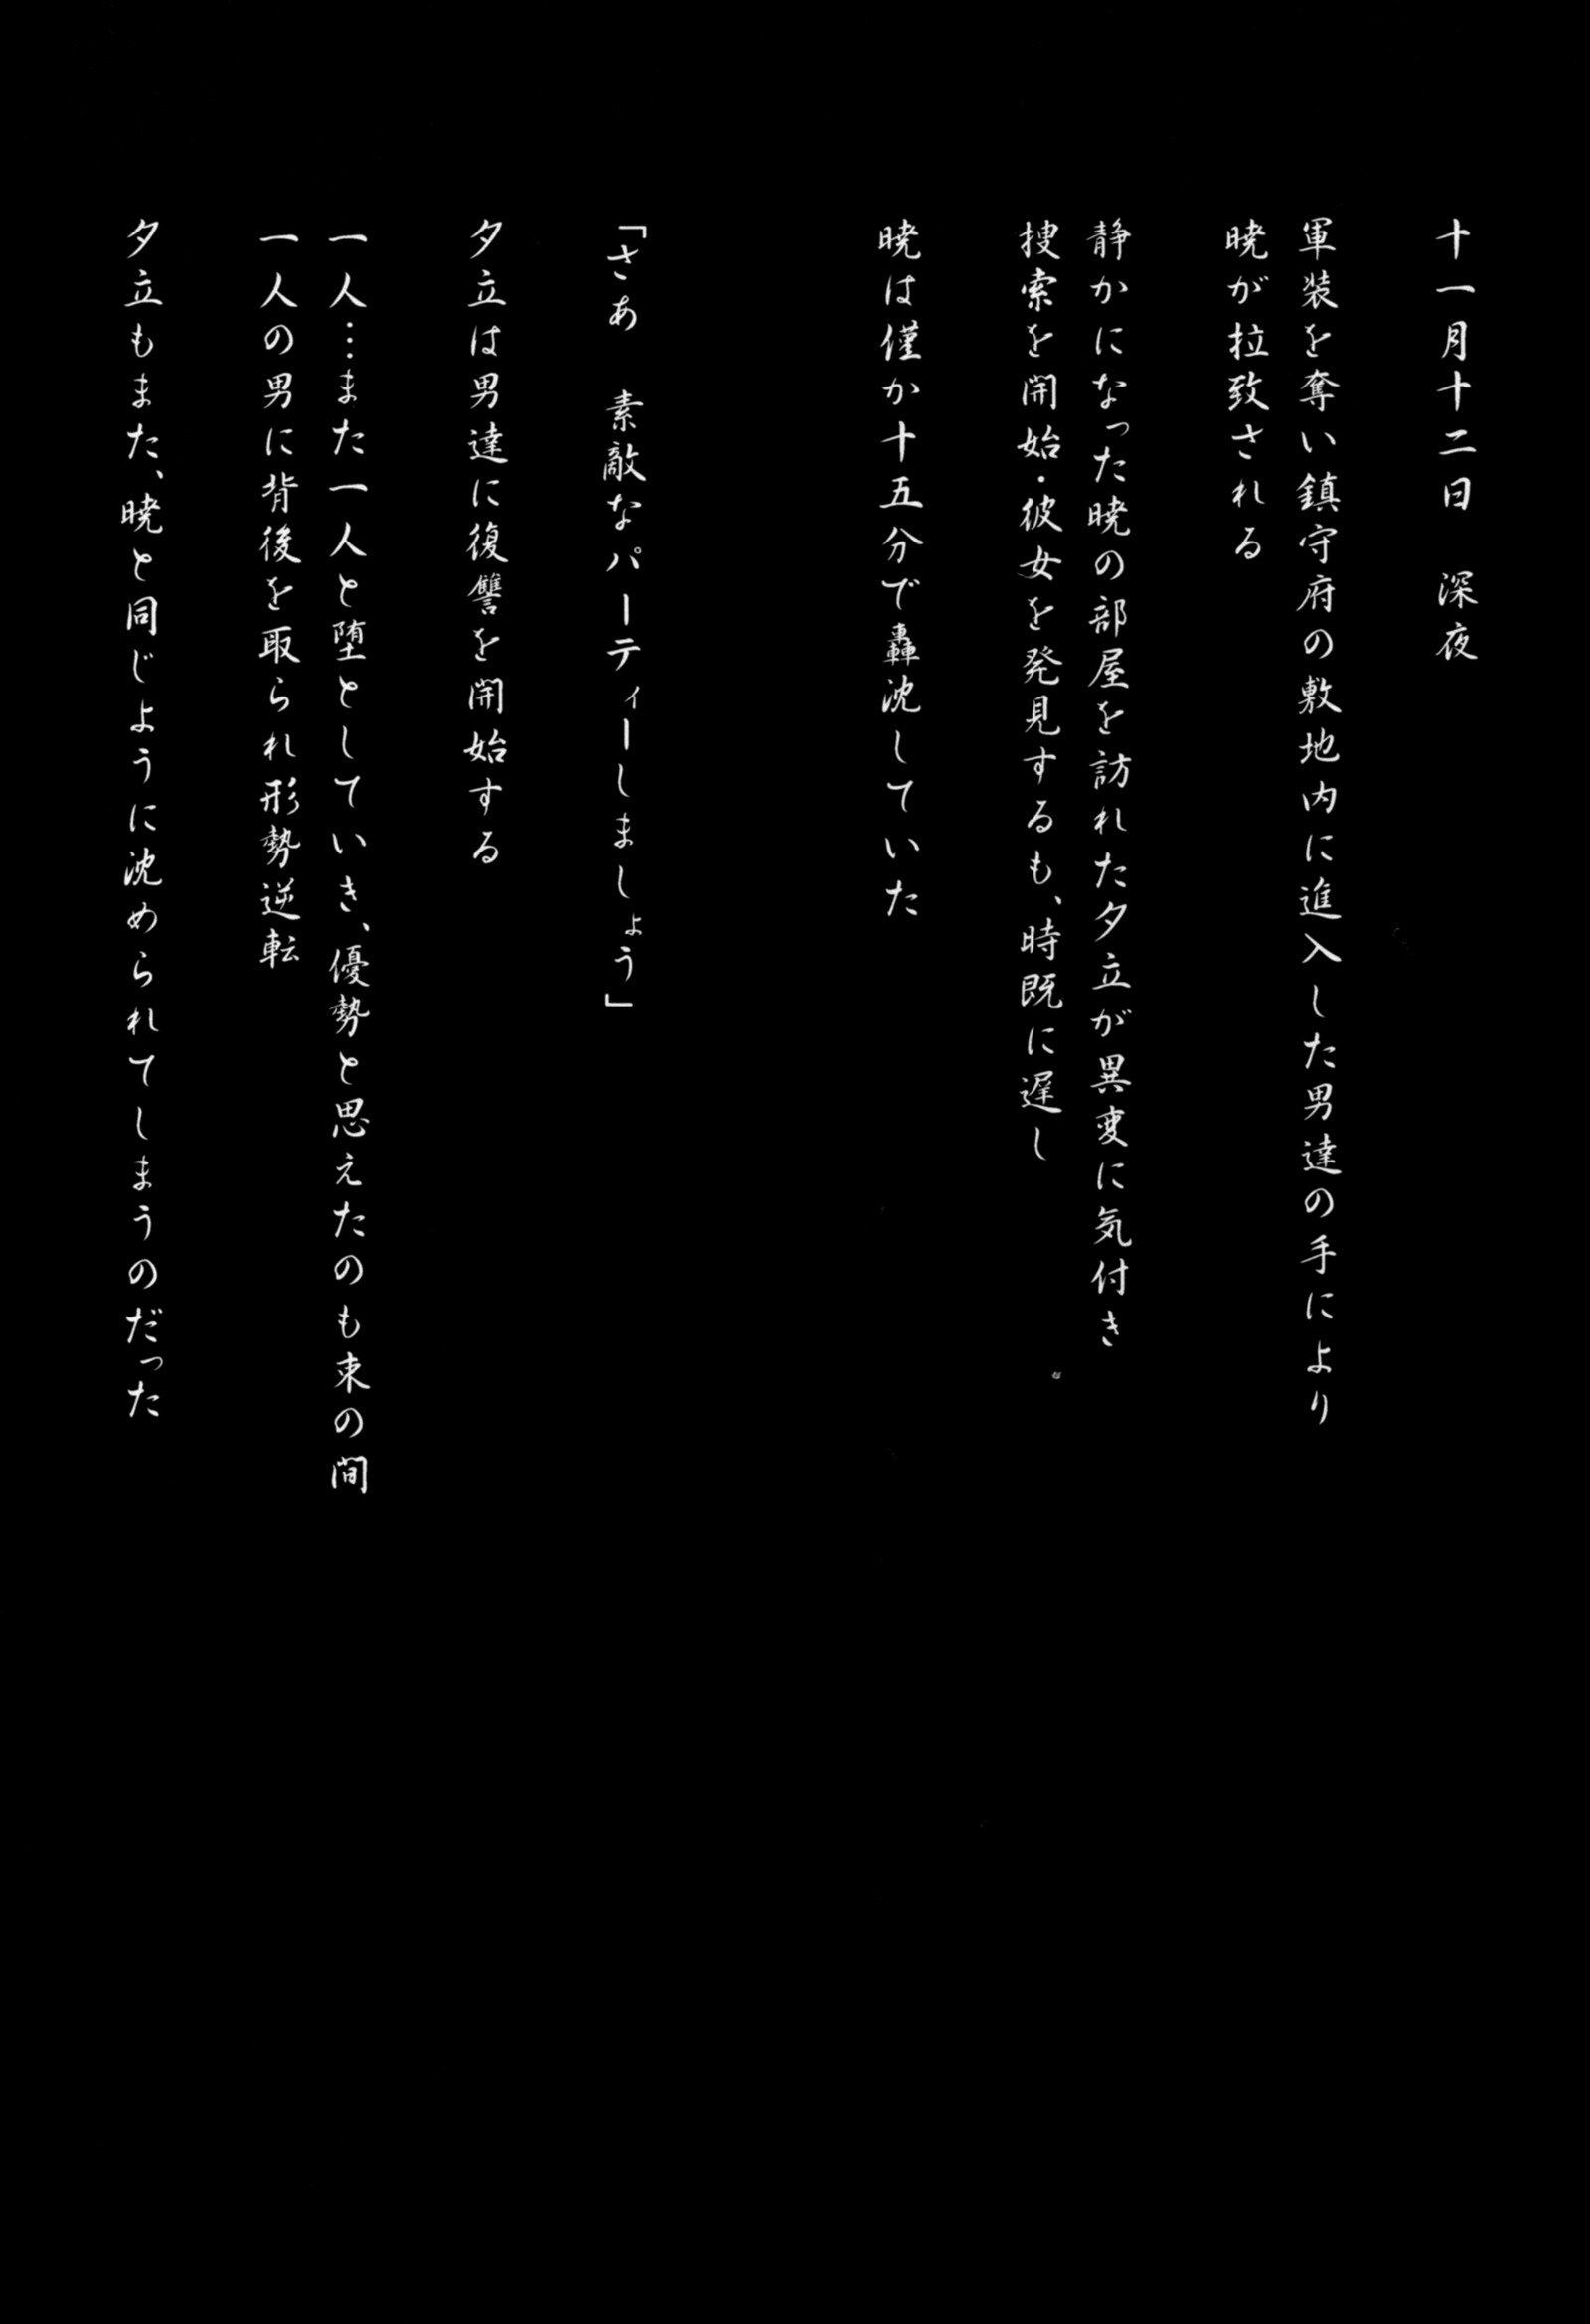 十一月十二日　深夜
軍装を奪い鎮守府の敷地内に進入した男達の手により
暁が拉致される
静かになった暁の部屋を訪れた夕立が異変に気付き
捜索を開始・彼女を発見するも、時既に遅し
暁は僅か十五分で轟沈していた
「さあ　素敵なパーティーしましょう」
夕立は男達に復讐を開始する
一人…また一人と堕としていき、優勢と思えたのも束の間
一人の男に背後を取られ形勢逆転
夕立もまた、暁と同じように沈められてしまうのだった